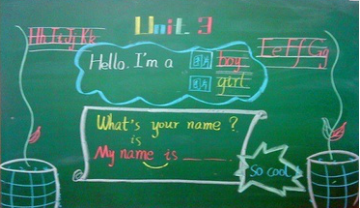 Unit 3
Hh Ii Jj Kk
Ee Ff Gg
Hello. I'm a
图片 boy
图片 girl
What's your name?
is
My name is
So cool